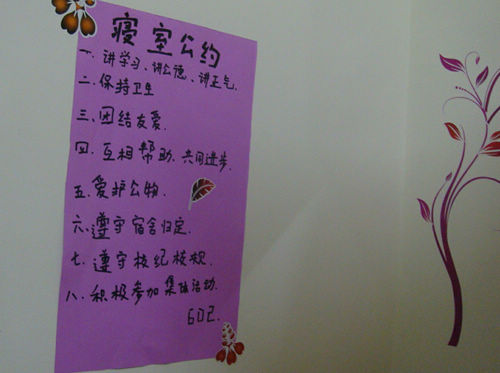 寝室公约
一.讲学习、讲公德、讲正气.
二.保持卫生
三.团结友爱.
四.互相帮助.共同进步.
五.爱护公物.
六.遵守宿舍归定.
七.遵守校纪校规.
八.积极参加集体活动.
602.